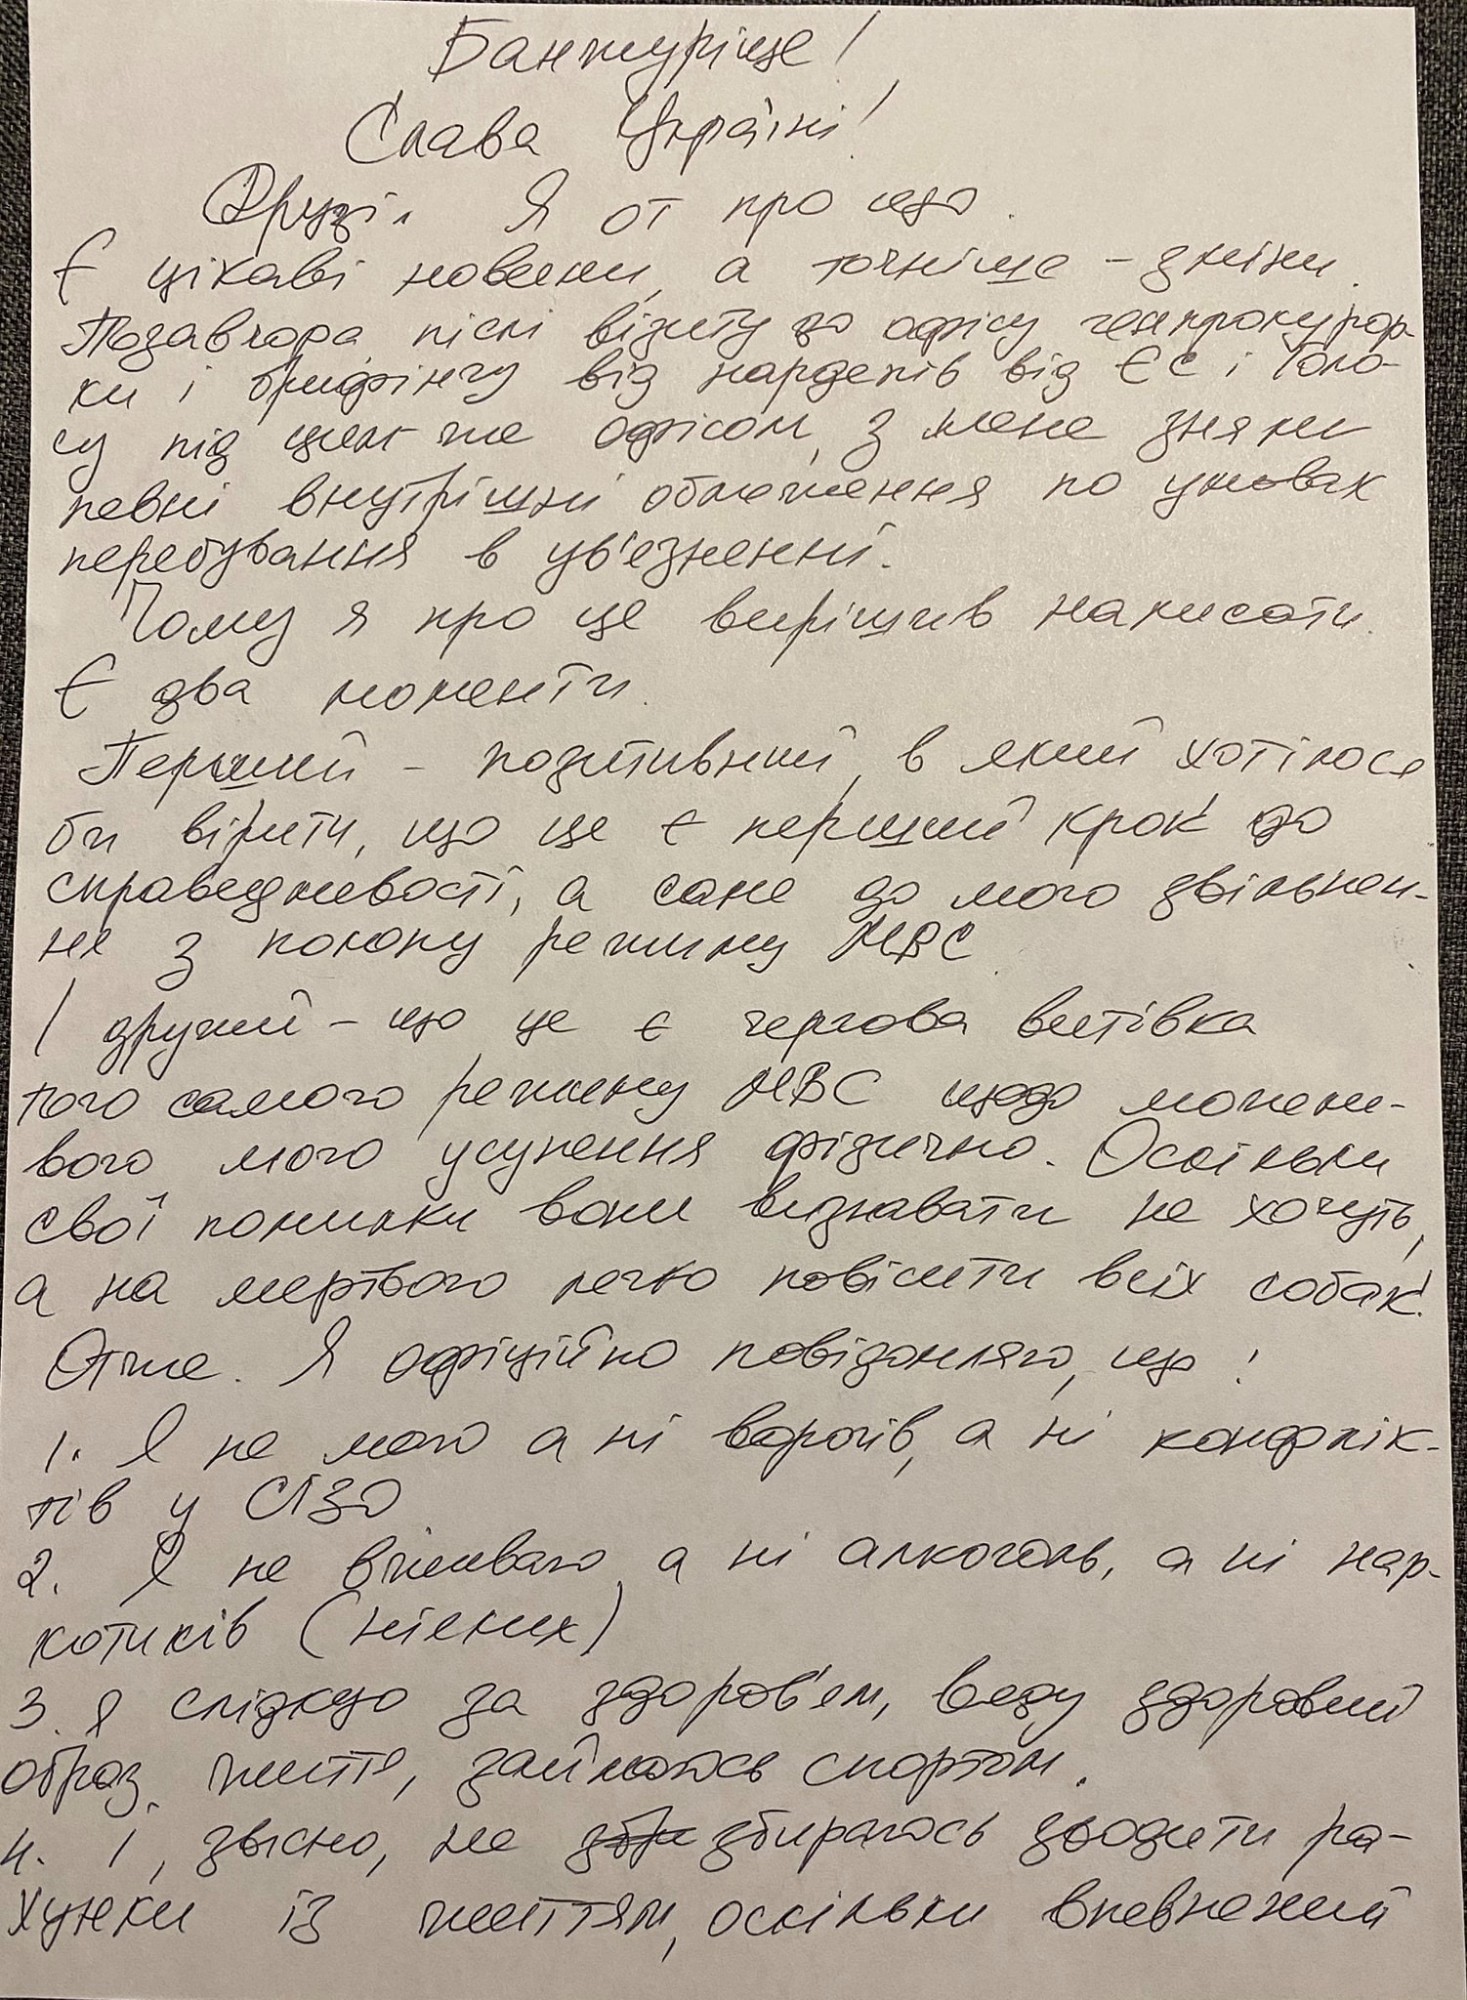 Банжуріще!
Слава Україні!
Друзі. Я от про що.
Є цікаві новини, а точніше – зміни.
Позавчора після візиту до офісу генпрокурор-
ки і брифінгу від нардепів від ЄС і Голо-
су під цим же офісом, з мене зняли
певні внутрішні обмеження по умовах
перебування в ув'язненні.
Чому я про це вирішив написати.
Є два моменти.
Перший – позитивний, в який хотілося
би вірити, що це є перший крок до
справедливості, а саме до мого звільнен-
ня з полону режиму МВС.
І другий – що це є чергова витівка
того самого режиму МВС щодо можли-
вого мого усунення фізично. Оскільки
свої помилки вони визнавати не хочуть,
а на мертвого легко повісити всіх собак.
Отже. Я офіційно повідомляю, що:
1. Я не маю а ні ворогів, а ні конфлік-
тів у СІЗО.
2. Я не вживаю а ні алкоголь, а ні нар-
котиків (ніяких)
3. Я слідкую за здоров'ям, веду здоровий
образ життя, займаюсь спортом.
4. І, звісно, не збираюсь зводити ра-
хунки із життям, оскільки впевнений